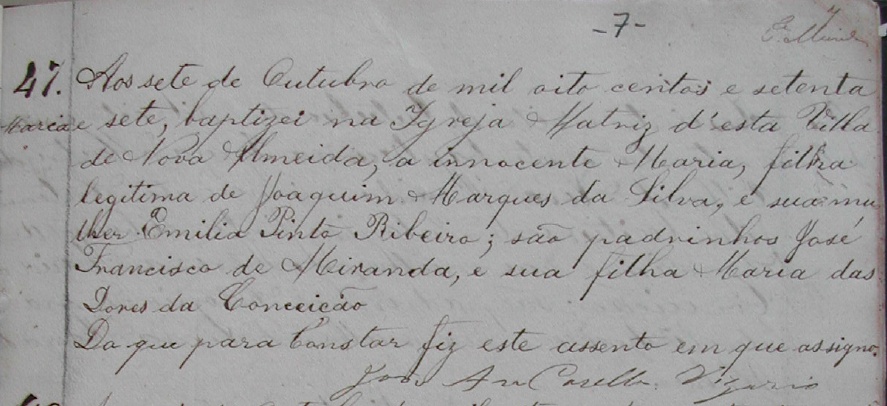 -7-
47. Aos sete de Outubro de mil oito centos e setenta
Maria e sete, baptizei na Igreja Matriz d'esta Villa
de Nova Almeida, a innocente Maria, filha
legitima de Joaquim Marques da Silva, e sua mu
lher Emilia Pinto Ribeiro; são padrinhos José
Francisco de Miranda, e sua filha Maria das
Dores da Conceição
Do que para Constar fiz este assento em que assigno.
Vigario